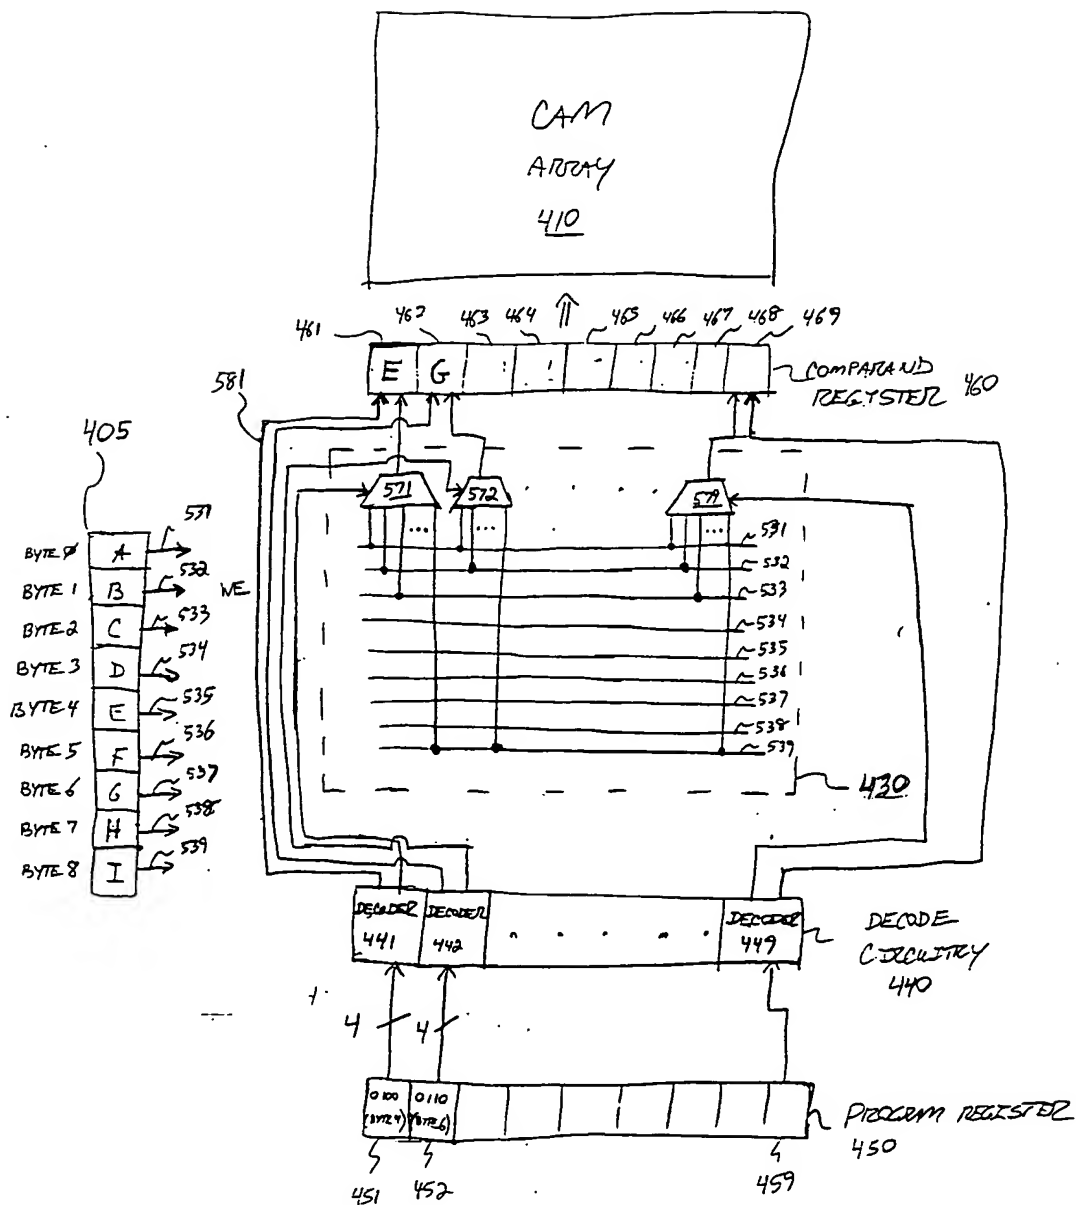 CAM
ARRAY
410
461
462
463
464
465
466
467
468
469
E G
COMPARAND
REGISTER 460
581
405
BYTE 0 A 531
BYTE 1 B 532
BYTE 2 C 533
BYTE 3 D 534
BYTE 4 E 535
BYTE 5 F 536
BYTE 6 G 537
BYTE 7 H 538
BYTE 8 I 539
WE
571
572
579
531
532
533
534
535
536
537
538
539
430
DECODER
441
DECODER
442
DECODER
449
DECODE
CIRCUITRY
440
4
4
0100
(BYTE 4)
0110
(BYTE 6)
PROGRAM REGISTER
450
451
452
459